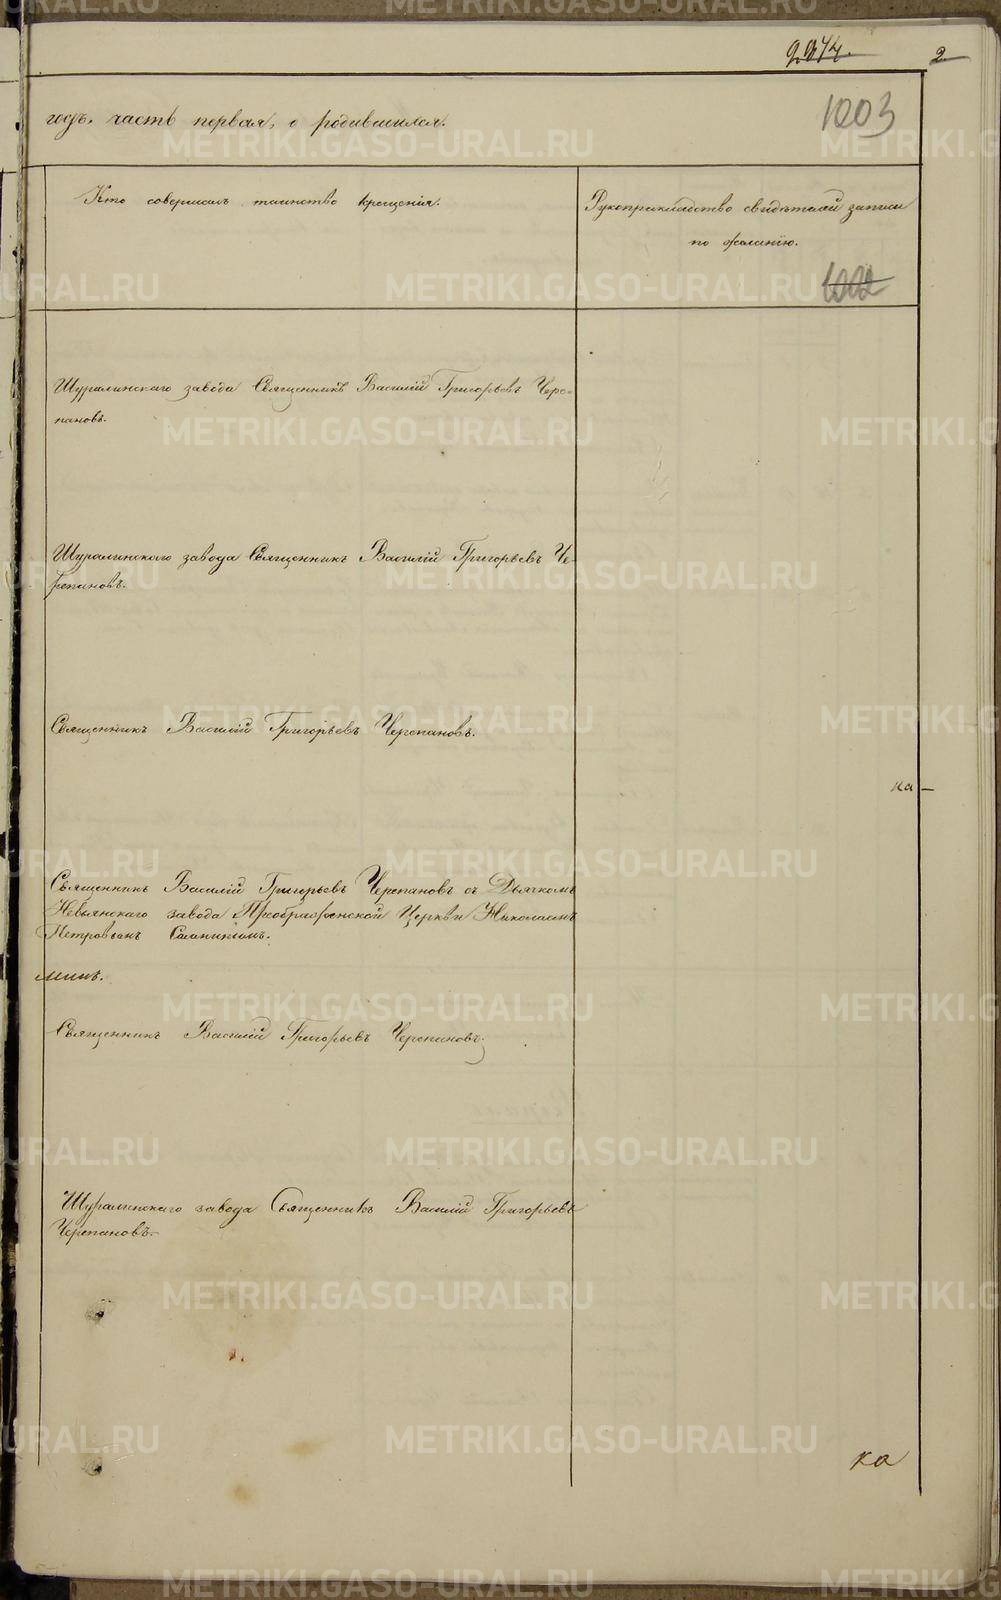 2274. 2
годъ. часть первая, о родившихся.
1003
Кто совершалъ таинство крещенія.
Рукоприкладство свидѣтелей записи
по желанію.
1002
Шуралинскаго завода Священникъ Василій Григорьевъ Чере-
пановъ.
Шуралинскаго завода Священникъ Василій Григорьевъ Че-
репановъ.
Священникъ Василій Григорьевъ Черепановъ.
ка
Священникъ Василій Григорьевъ Черепановъ съ Дьячкомъ
Невьянскаго завода Преображенской Церкви Николаемъ
Петровымъ
Священникъ Василій Григорьевъ Черепановъ.
Шуралинскаго завода Священникъ Василій Григорьевъ
Черепановъ.
ка
METRIKI.GASO-URAL.RU